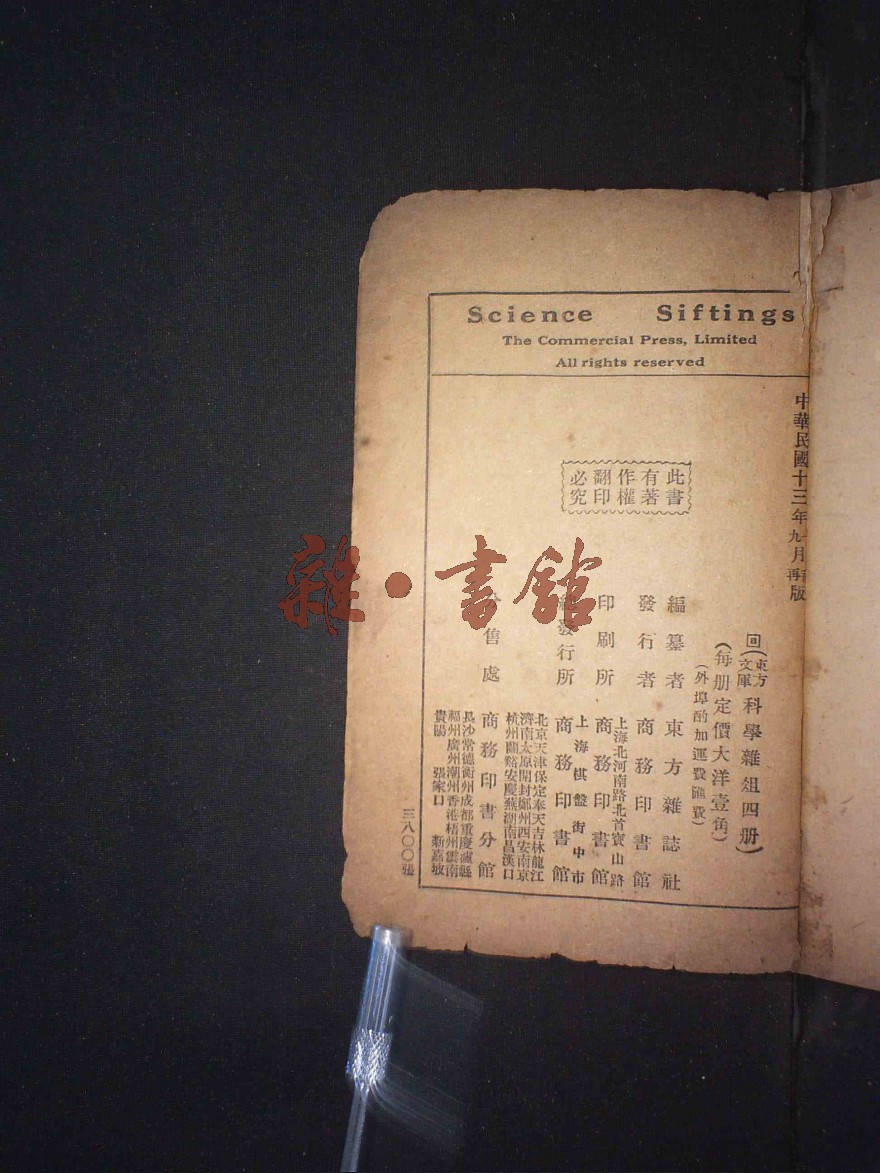 Science Siftings
The Commercial Press, Limited
All rights reserved
中華民國十三年九月再版
此書
有著
作權
翻印
必究
回(東方文庫)科學雜俎四册)
(每册定價大洋壹角)
(外埠酌加運費匯費)
編纂者 東方雜誌社
發行者 商務印書館
上海北河南路北首寶山路
印刷所 商務印書館
上海棋盤街中市
總發行所 商務印書館
北京天津保定奉天吉林龍江
濟南太原開封鄭州西安南京
杭州蘭谿安慶蕪湖南昌漢口
分售處 商務印書分館
長沙常德衡州成都重慶瀘縣
福州廣州潮州香港梧州雲南
貴陽 張家口 新嘉坡
三八〇〇張
雜·書館